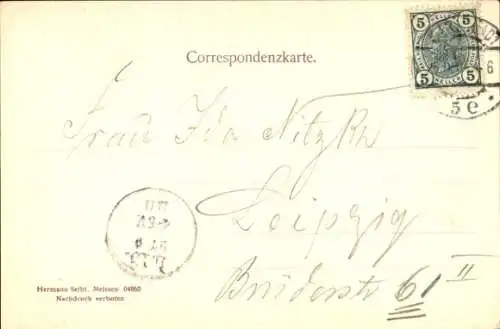 5 5
5 HELLER 5
5 e
6
Correspondenzkarte.
Frau Ida Nitzke
Leipzig
Brüderstr 61 II
Hermann Seibt. Meissen 04860
Nachdruck verboten